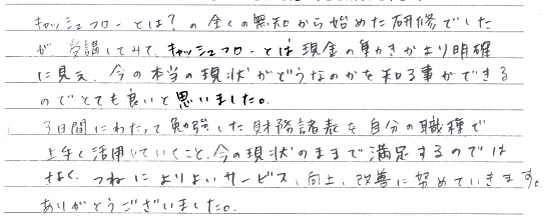 キャッシュフローとは？の全くの無知から始めた研修でした
が、受講してみて、キャッシュフローとは現金の動きがより明確
に見え、今の本当の現状がどうなのかを知る事ができる
のでとても良いと思いました。
3日間にわたって勉強した財務諸表を自分の職種で
上手く活用していくこと、今の現状のままで満足するのでは
なく、つねによりよいサービス、向上、改善に努めていきます。
ありがとうございました。